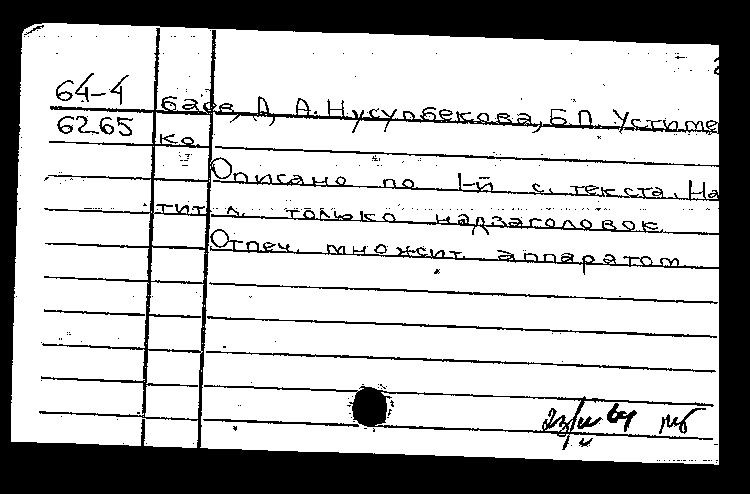 64-4 баев, А. А. Нусупбекова, Б.П. Устимен
6265 ко.
Описано по 1-й с. текста. На
тит. л. только надзаголовок
Отпеч. множит. аппаратом
64